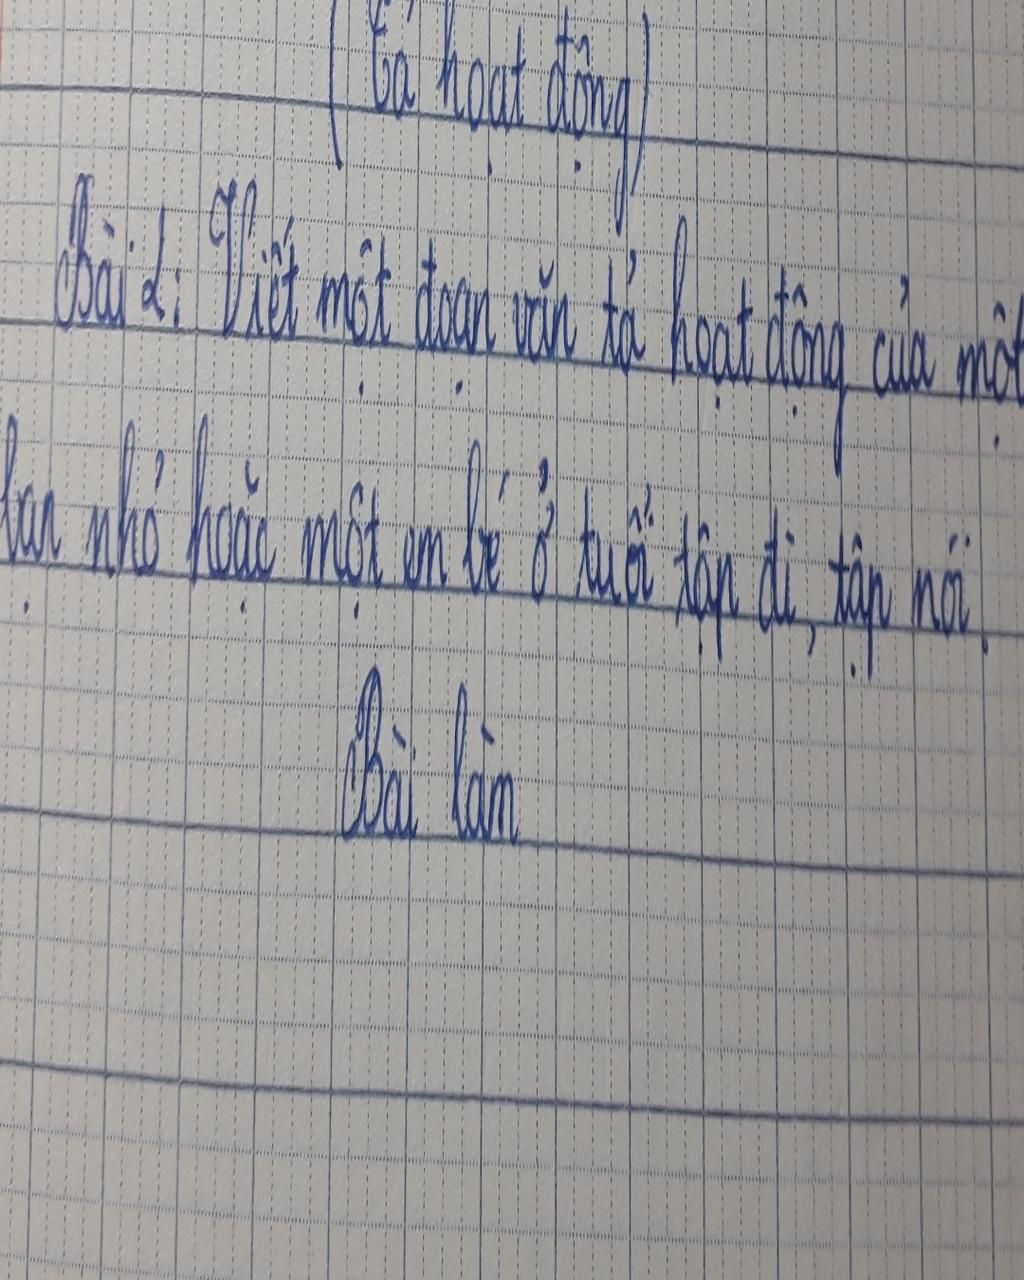 (Tả hoạt động)
Bài 2: Viết một đoạn văn tả hoạt động của một
bạn nhỏ hoặc một em bé ở tuổi tập đi, tập nói.
Bài làm